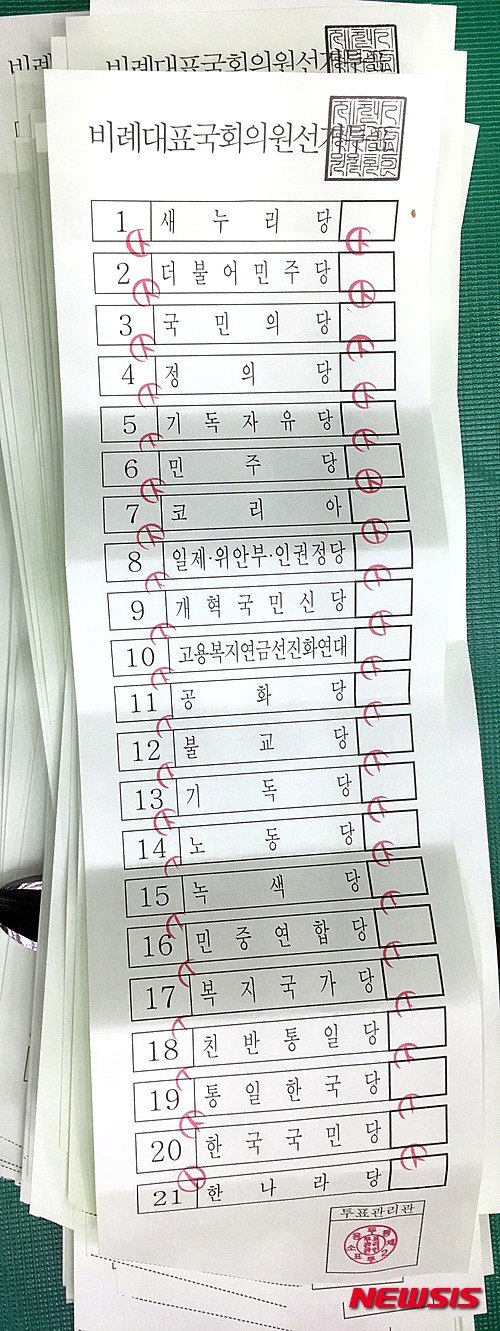 비례
비례대표국회의원선거투표
비례대표국회의원선거투표
1 새누리당
2 더불어민주당
3 국민의당
4 정의당
5 기독자유당
6 민주당
7 코리아
8 일제·위안부·인권정당
9 개혁국민신당
10 고용복지연금선진화연대
11 공화당
12 불교당
13 기독당
14 노동당
15 녹색당
16 민중연합당
17 복지국가당
18 친반통일당
19 통일한국당
20 한국국민당
21 한나라당
투표관리관
NEWSIS